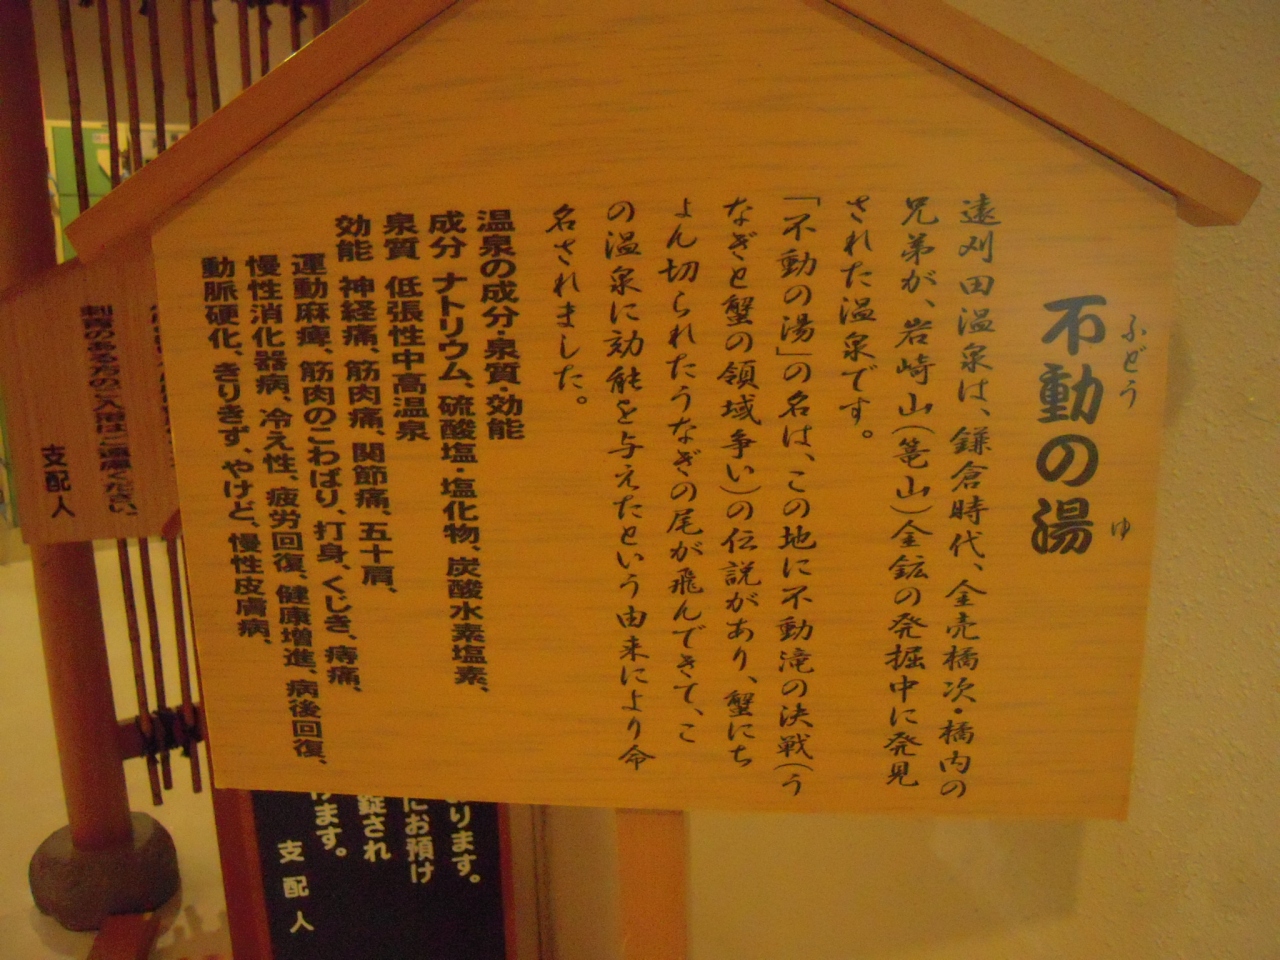 不動の湯
ふどう
ゆ
遠刈田温泉は、鎌倉時代、金売橘次・橘内の
兄弟が、岩崎山(篭山)金鉱の発掘中に発見
された温泉です。
「不動の湯」の名は、この地に不動滝の決戦(う
なぎと蟹の領域争い)の伝説があり、蟹にち
ょん切られたうなぎの尾が飛んできて、こ
の温泉に効能を与えたという由来により命
名されました。
温泉の成分・泉質・効能
成分 ナトリウム、硫酸塩・塩化物、炭酸水素塩素、
泉質 低張性中高温泉
効能 神経痛、筋肉痛、関節痛、五十肩、
運動麻痺、筋肉のこわばり、打身、くじき、痔痛、
慢性消化器病、冷え性、疲労回復、健康増進、病後回復、
動脈硬化、きりきず、やけど、慢性皮膚病、
刺青のある方のご入浴はご遠慮ください。
支配人
ります。
にお預け
錠され
けます。
支配人